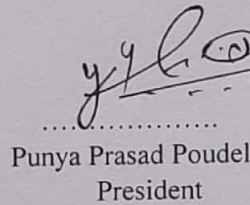 ..................
Punya Prasad Poudel
President